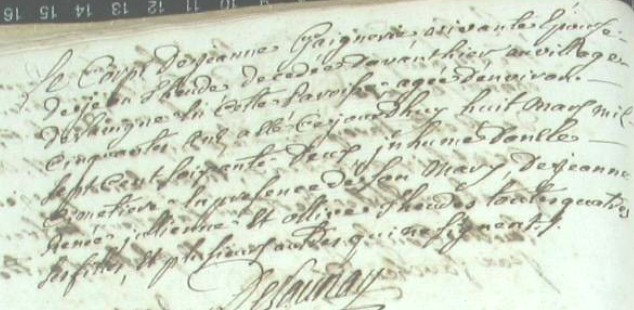 16 15 14 13 12 11 10
Le Corps de Jeanne Gaignerie vivante Epouse
de Jean heude decedée davanthier au village
de en cette paroisse agée denviron
cinquante ans a été cejourdhuy huit mars mil
sept cent soixante deux inhumé dans le
cimetiere en presence de son mary, de Jeanne
Renée, Etienne et ollive heudes toutes quatres
ses filles, et plusieurs autres qui ne signent.
Delaunay